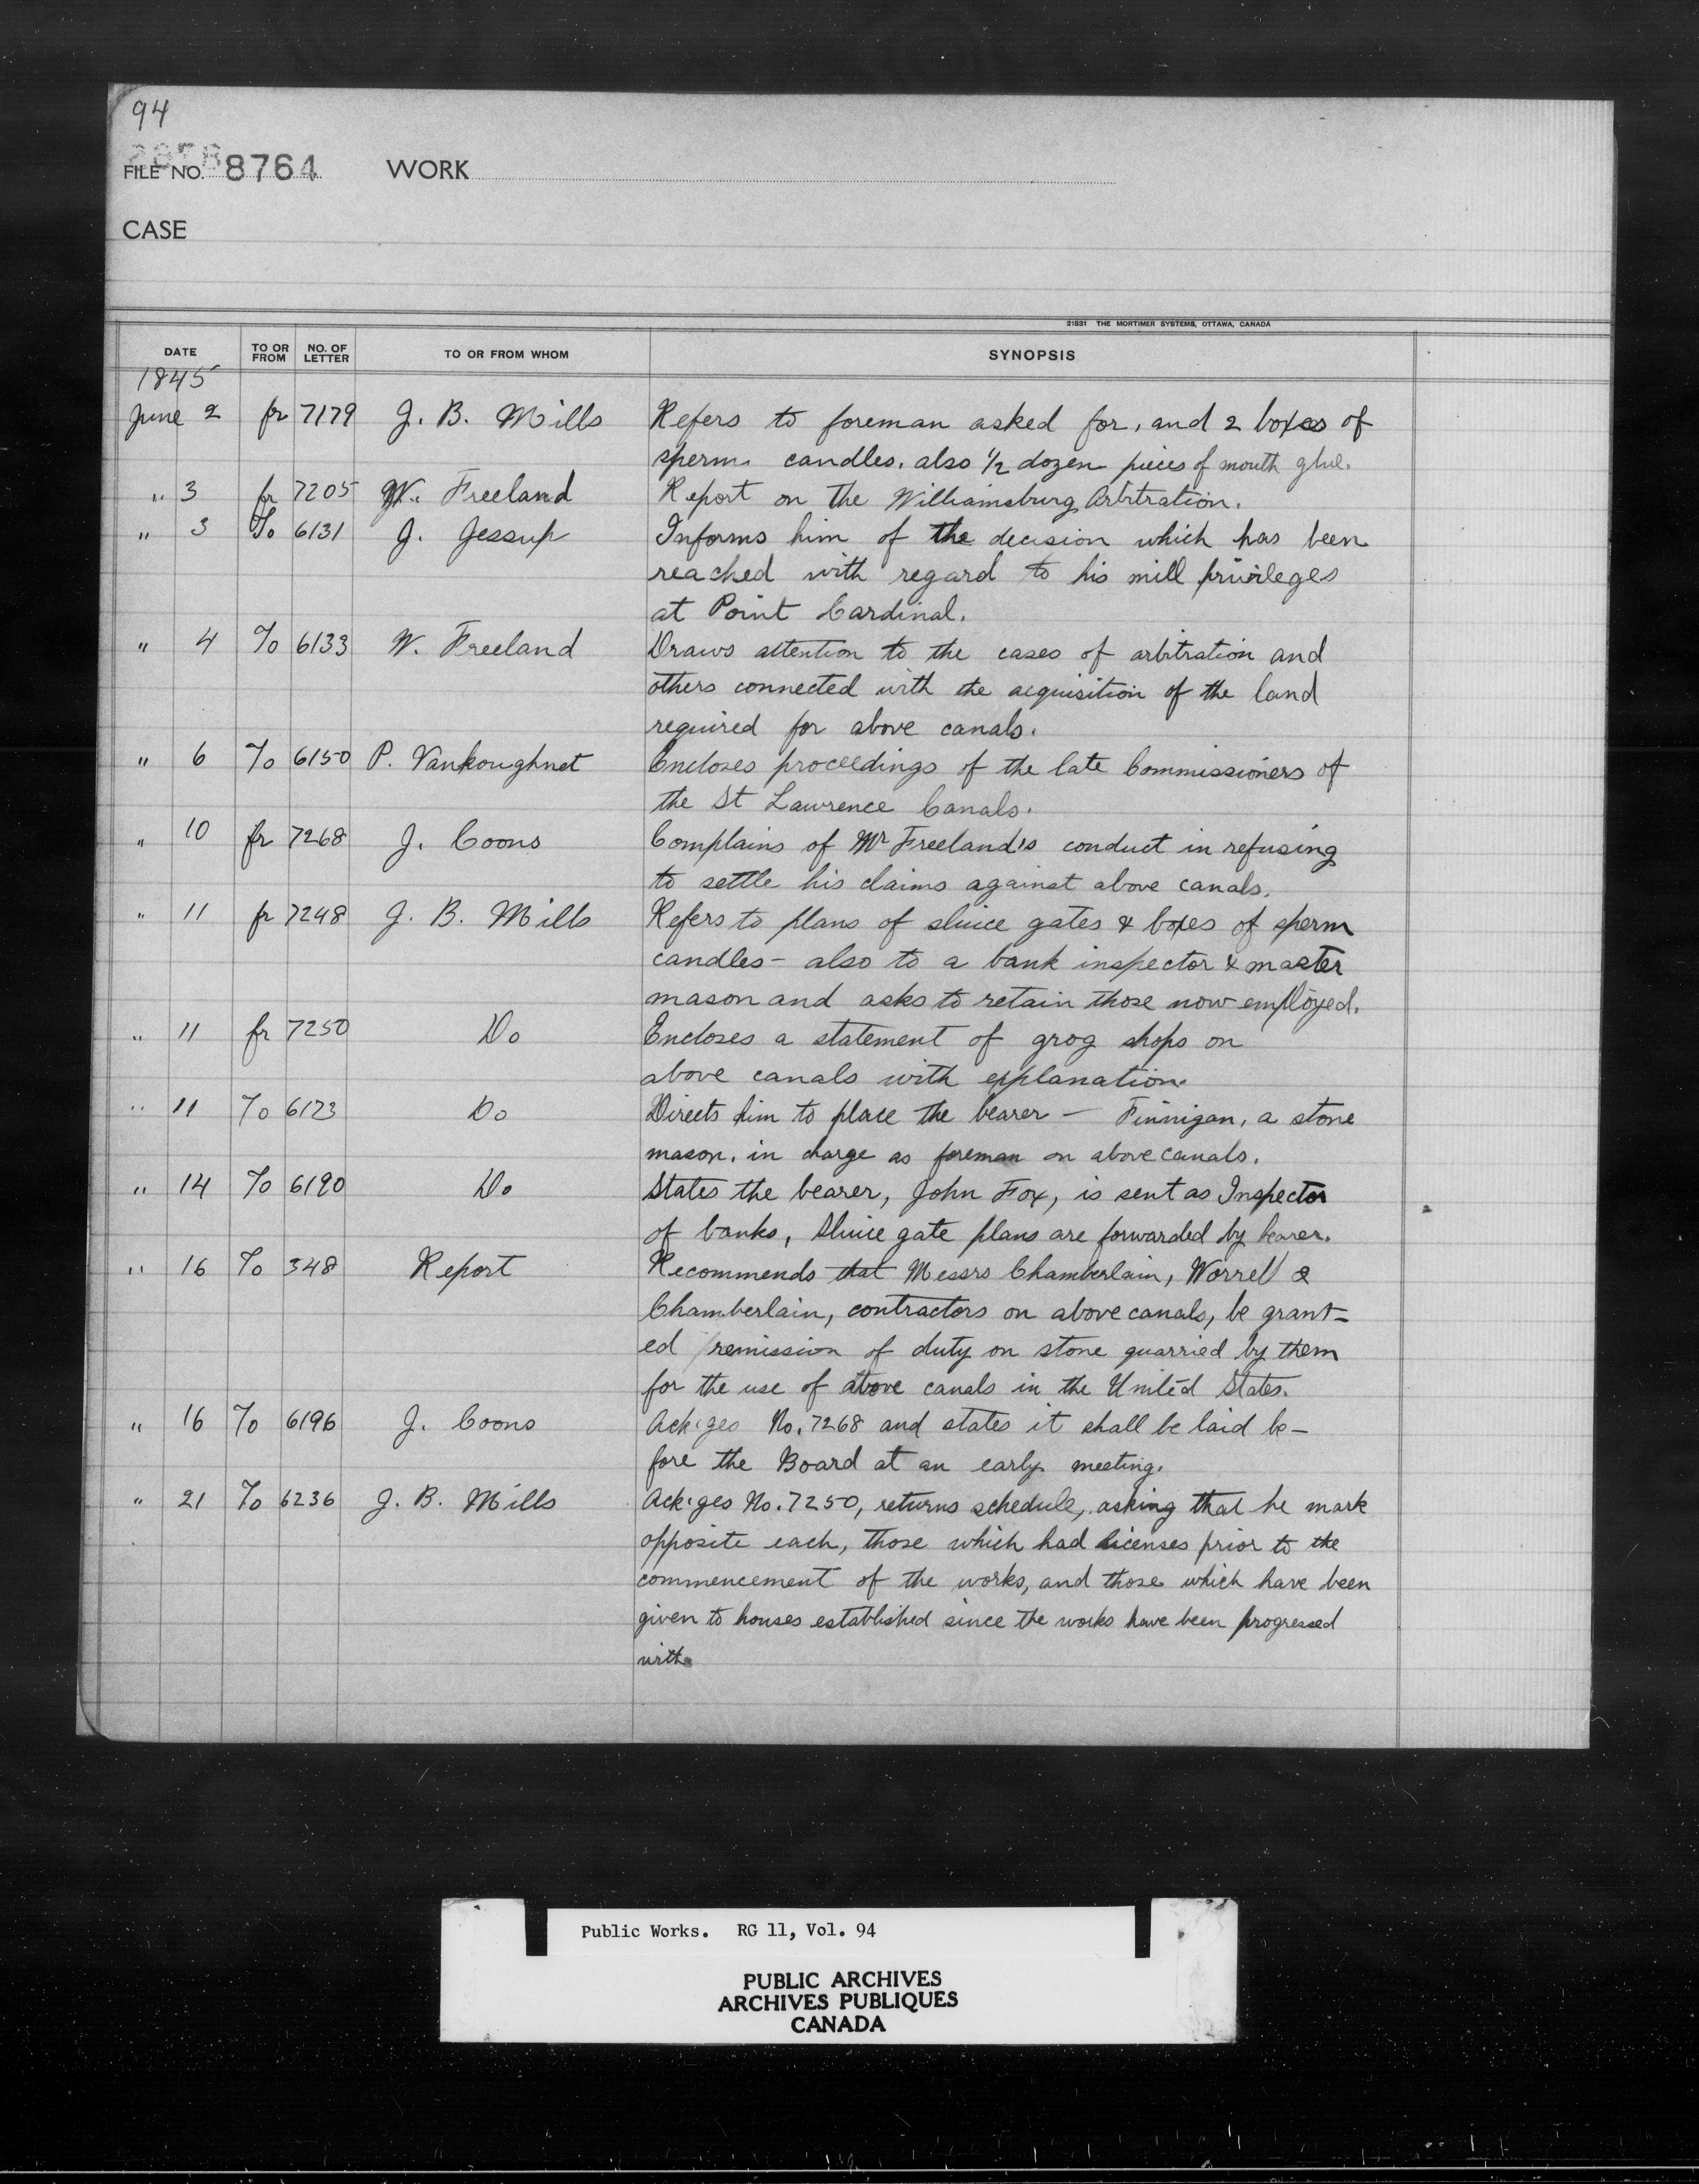 94
FILE NO. 8764 WORK
CASE
21831 THE MORTIMER SYSTEMS, OTTAWA, CANADA
DATE TO OR FROM NO. OF LETTER TO OR FROM WHOM SYNOPSIS
1845
June 2 fr 7179 J. B. Mills Refers to foreman asked for, and 2 boxes of
sperm candles. also 1/2 dozen pieces of mouth glue.
" 3 fr 7205 W. Freeland Report on the Williamsburg Arbitration.
" 3 To 6131 J. Jessup Informs him of the decision which has been
reached with regard to his mill privileges
at Point Cardinal.
" 4 To 6133 W. Freeland Draws attention to the cases of arbitration and
others connected with the acquisition of the land
required for above canals.
" 6 To 6150 P. Vankoughnet Encloses proceedings of the late Commissioners of
the St Lawrence Canals.
" 10 fr 7268 J. Coons Complains of Mr Freeland's conduct in refusing
to settle his claims against above canals.
" 11 fr 7248 J. B. Mills Refers to plans of sluice gates & boxes of sperm
candles - also to a bank inspector & master
mason and asks to retain those now employed.
" 11 fr 7250 Do Encloses a statement of grog shops on
above canals with explanation.
" 11 To 6173 Do Directs him to place the bearer — Finnigan, a stone
mason, in charge as foreman on above canals.
" 14 To 6190 Do States the bearer, John Fox, is sent as Inspector
of banks, Sluice gate plans are forwarded by bearer.
" 16 To 348 Report Recommends that Messrs Chamberlain, Worrell &
Chamberlain, contractors on above canals, be grant-
ed remission of duty on stone quarried by them
for the use of above canals in the United States.
" 16 To 6196 J. Coons Ack'ges No. 7268 and states it shall be laid be-
fore the Board at an early meeting.
" 21 To 6236 J. B. Mills Ack'ges No. 7250, returns schedule, asking that he mark
opposite each, those which had licenses prior to the
commencement of the works, and those which have been
given to houses established since the works have been progressed
with.
Public Works. RG 11, Vol. 94
PUBLIC ARCHIVES
ARCHIVES PUBLIQUES
CANADA